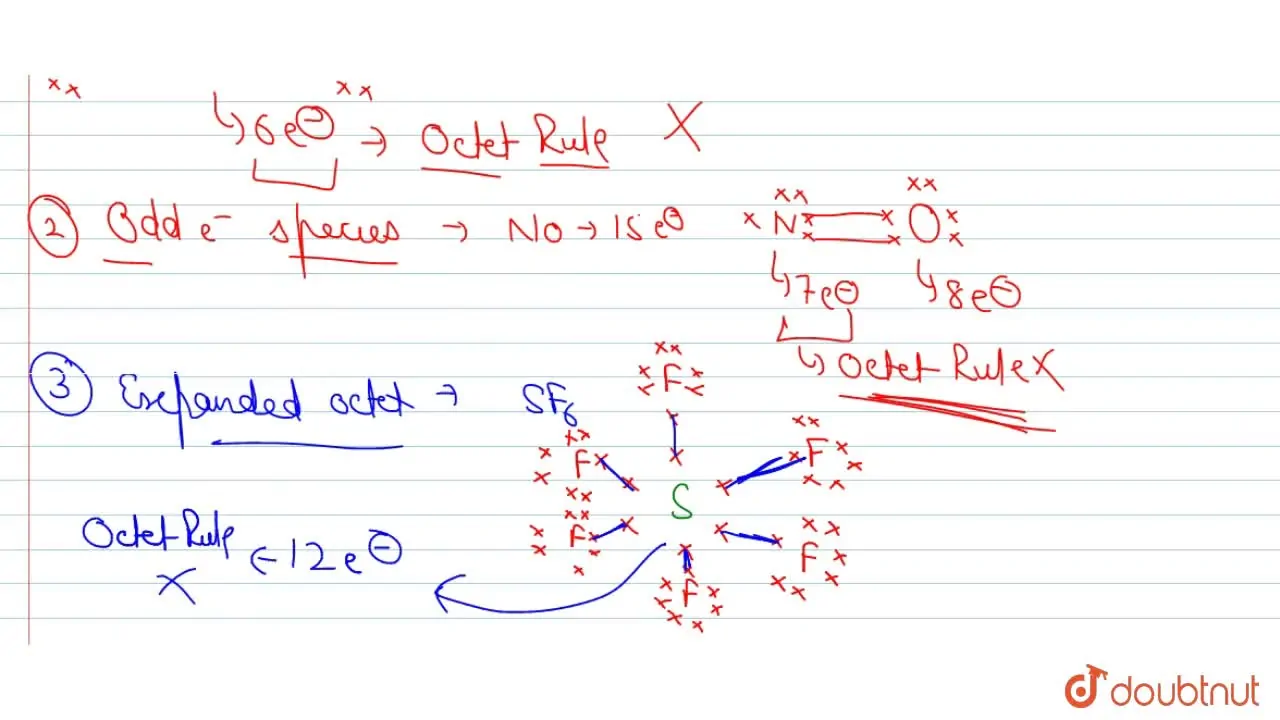 ↳ 6e⊖ → Octet Rule X
② Odd e⁻ species → NO → 15e⊖ N O
↳ 7e⊖ ↳ 8e⊖
↳ Octet Rule X
③ Expanded octet → SF₆
F
F F
S
F F
F
Octet Rule ← 12e⊖
X
doubtnut